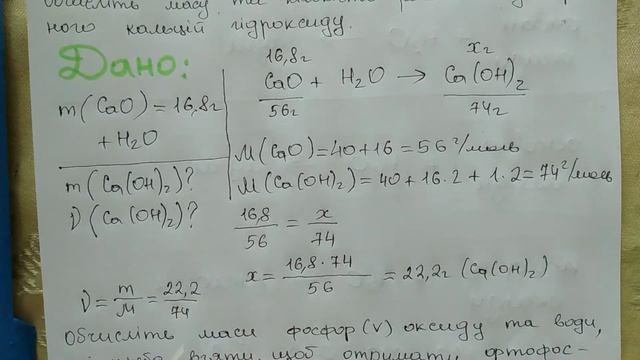 обчисліть масу та
ного кальцій гідроксиду.
Дано:
m(CaO)=16,8г
+ H₂O
m(Ca(OH)₂)?
ν(Ca(OH)₂)?
16,8г xг
CaO + H₂O → Ca(OH)₂
56г 74г
M(CaO)=40+16=56г/моль
M(Ca(OH)₂)=40+16·2+1·2=74г/моль
16,8/56 = x/74
x = 16,8·74/56 = 22,2г (Ca(OH)₂)
ν = m/M = 22,2/74
Обчисліть маси фосфор(V) оксиду та води,
взяти, щоб отримати ортофос-